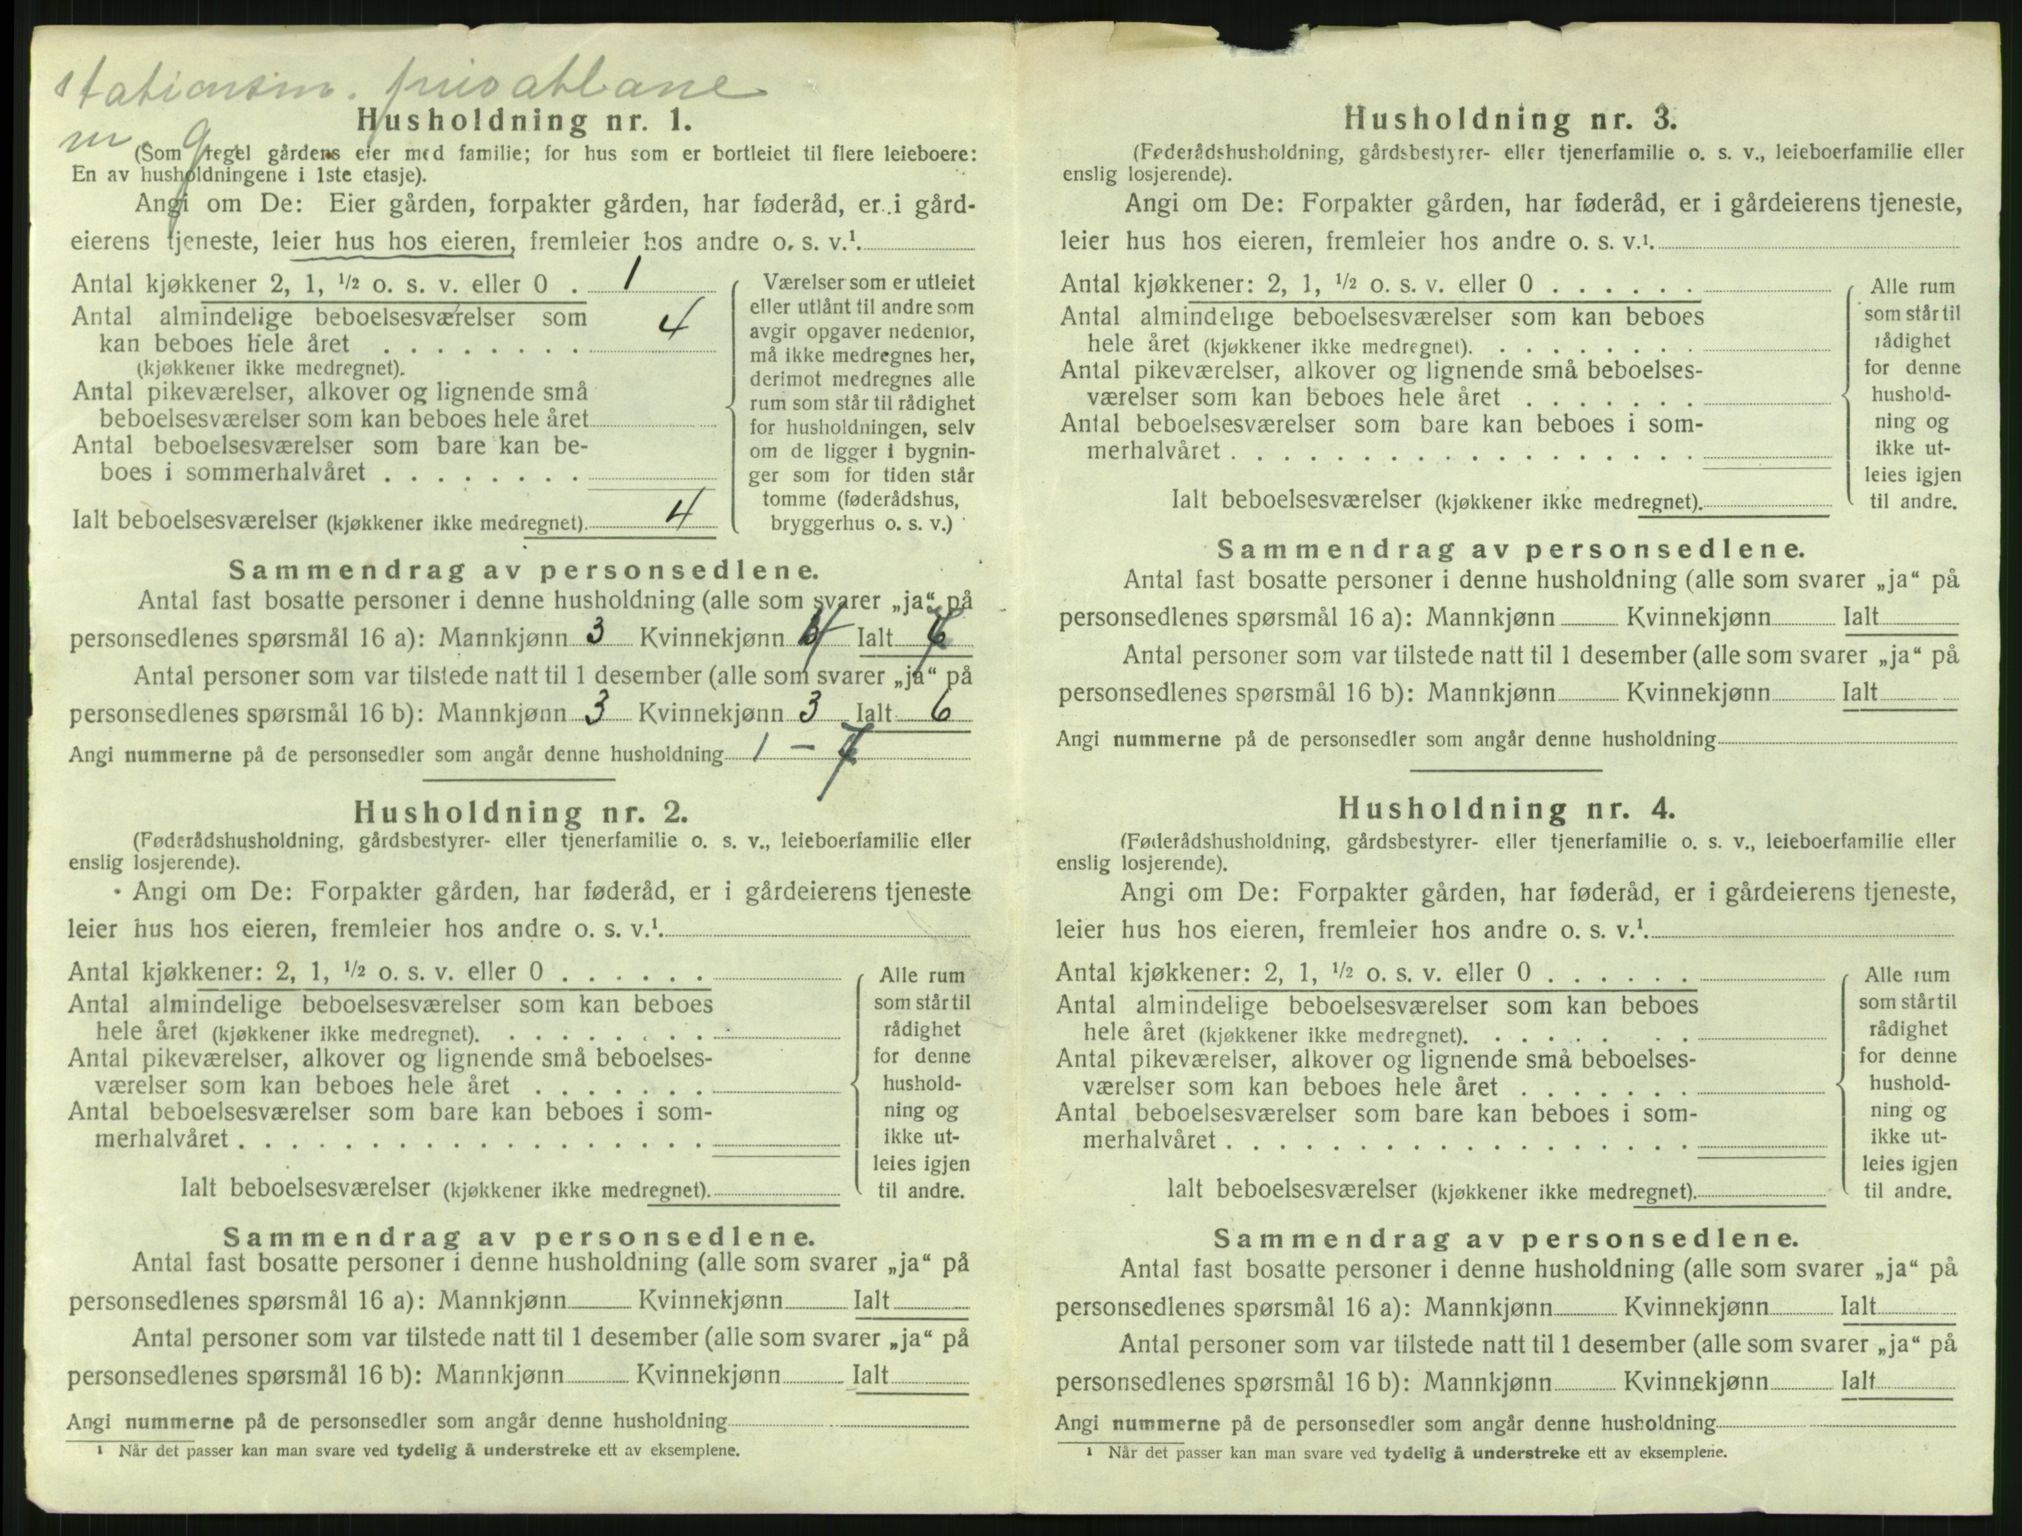 stationsm. privatbane
m. g
Husholdning nr. 1.
(Som regel gårdens eier med familie; for hus som er bortleiet til flere leieboere:
En av husholdningene i 1ste etasje).
Angi om De: Eier gården, forpakter gården, har føderåd, er i gård-
eierens tjeneste, leier hus hos eieren, fremleier hos andre o. s. v.¹
Antal kjøkkener 2, 1, ½ o. s. v. eller 0 . 1
Antal almindelige beboelsesværelser som 4
kan beboes hele året . . . . . . . .
(kjøkkener ikke medregnet).
Antal pikeværelser, alkover og lignende små
beboelsesværelser som kan beboes hele året
Antal beboelsesværelser som bare kan be-
boes i sommerhalvåret . . . . . . . .
Ialt beboelsesværelser (kjøkkener ikke medregnet). 4
Værelser som er utleiet
eller utlånt til andre som
avgir opgaver nedenfor,
må ikke medregnes her,
derimot medregnes alle
rum som står til rådighet
for husholdningen, selv
om de ligger i bygnin-
ger som for tiden står
tomme (føderådshus,
bryggerhus o. s. v.)
Sammendrag av personsedlene.
Antal fast bosatte personer i denne husholdning (alle som svarer „ja“ på
personsedlenes spørsmål 16 a): Mannkjønn 3 Kvinnekjønn 4 Ialt 7
Antal personer som var tilstede natt til 1 desember (alle som svarer „ja“ på
personsedlenes spørsmål 16 b): Mannkjønn 3 Kvinnekjønn 3 Ialt 6
Angi nummerne på de personsedler som angår denne husholdning 1 – 7
Husholdning nr. 2.
(Føderådshusholdning, gårdsbestyrer- eller tjenerfamilie o. s. v., leieboerfamilie eller
enslig losjerende).
Angi om De: Forpakter gården, har føderåd, er i gårdeierens tjeneste
leier hus hos eieren, fremleier hos andre o. s. v.¹
Antal kjøkkener: 2, 1, ½ o. s. v. eller 0 . . . . . .
Antal almindelige beboelsesværelser som kan beboes
hele året (kjøkkener ikke medregnet). . . . . . . .
Antal pikeværelser, alkover og lignende små beboelses-
værelser som kan beboes hele året . . . . . . .
Antal beboelsesværelser som bare kan beboes i som-
merhalvåret . . . . . . . . . . . . . . . . . .
Ialt beboelsesværelser (kjøkkener ikke medregnet).
Alle rum
som står til
rådighet
for denne
hushold-
ning og
ikke ut-
leies igjen
til andre.
Sammendrag av personsedlene.
Antal fast bosatte personer i denne husholdning (alle som svarer „ja“ på
personsedlenes spørsmål 16 a): Mannkjønn Kvinnekjønn Ialt
Antal personer som var tilstede natt til 1 desember (alle som svarer „ja“ på
personsedlenes spørsmål 16 b): Mannkjønn Kvinnekjønn Ialt
Angi nummerne på de personsedler som angår denne husholdning
¹ Når det passer kan man svare ved tydelig å understreke ett av eksemplene.
Husholdning nr. 3.
(Føderådshusholdning, gårdsbestyrer- eller tjenerfamilie o. s. v., leieboerfamilie eller
enslig losjerende).
Angi om De: Forpakter gården, har føderåd, er i gårdeierens tjeneste,
leier hus hos eieren, fremleier hos andre o. s. v.¹
Antal kjøkkener: 2, 1, ½ o. s. v. eller 0 . . . . . .
Antal almindelige beboelsesværelser som kan beboes
hele året (kjøkkener ikke medregnet). . . . . . . .
Antal pikeværelser, alkover og lignende små beboelses-
værelser som kan beboes hele året . . . . . . .
Antal beboelsesværelser som bare kan beboes i som-
merhalvåret . . . . . . . . . . . . . . . . . .
Ialt beboelsesværelser (kjøkkener ikke medregnet).
Alle rum
som står til
rådighet
for denne
hushold-
ning og
ikke ut-
leies igjen
til andre.
Sammendrag av personsedlene.
Antal fast bosatte personer i denne husholdning (alle som svarer „ja“ på
personsedlenes spørsmål 16 a): Mannkjønn Kvinnekjønn Ialt
Antal personer som var tilstede natt til 1 desember (alle som svarer „ja“ på
personsedlenes spørsmål 16 b): Mannkjønn Kvinnekjønn Ialt
Angi nummerne på de personsedler som angår denne husholdning
Husholdning nr. 4.
(Føderådshusholdning, gårdsbestyrer- eller tjenerfamilie o. s. v., leieboerfamilie eller
enslig losjerende).
Angi om De: Forpakter gården, har føderåd, er i gårdeierens tjeneste,
leier hus hos eieren, fremleier hos andre o. s. v.¹
Antal kjøkkener: 2, 1, ½ o. s. v. eller 0 . . . . . .
Antal almindelige beboelsesværelser som kan beboes
hele året (kjøkkener ikke medregnet). . . . . . . .
Antal pikeværelser, alkover og lignende små beboelses-
værelser som kan beboes hele året . . . . . . .
Antal beboelsesværelser som bare kan beboes i som-
merhalvåret . . . . . . . . . . . . . . . . . .
Ialt beboelsesværelser (kjøkkener ikke medregnet).
Alle rum
som står til
rådighet
for denne
hushold-
ning og
ikke ut-
leies igjen
til andre.
Sammendrag av personsedlene.
Antal fast bosatte personer i denne husholdning (alle som svarer „ja“ på
personsedlenes spørsmål 16 a): Mannkjønn Kvinnekjønn Ialt
Antal personer som var tilstede natt til 1 desember (alle som svarer „ja“ på
personsedlenes spørsmål 16 b): Mannkjønn Kvinnekjønn Ialt
Angi nummerne på de personsedler som angår denne husholdning
¹ Når det passer kan man svare ved tydelig å understreke ett av eksemplene.